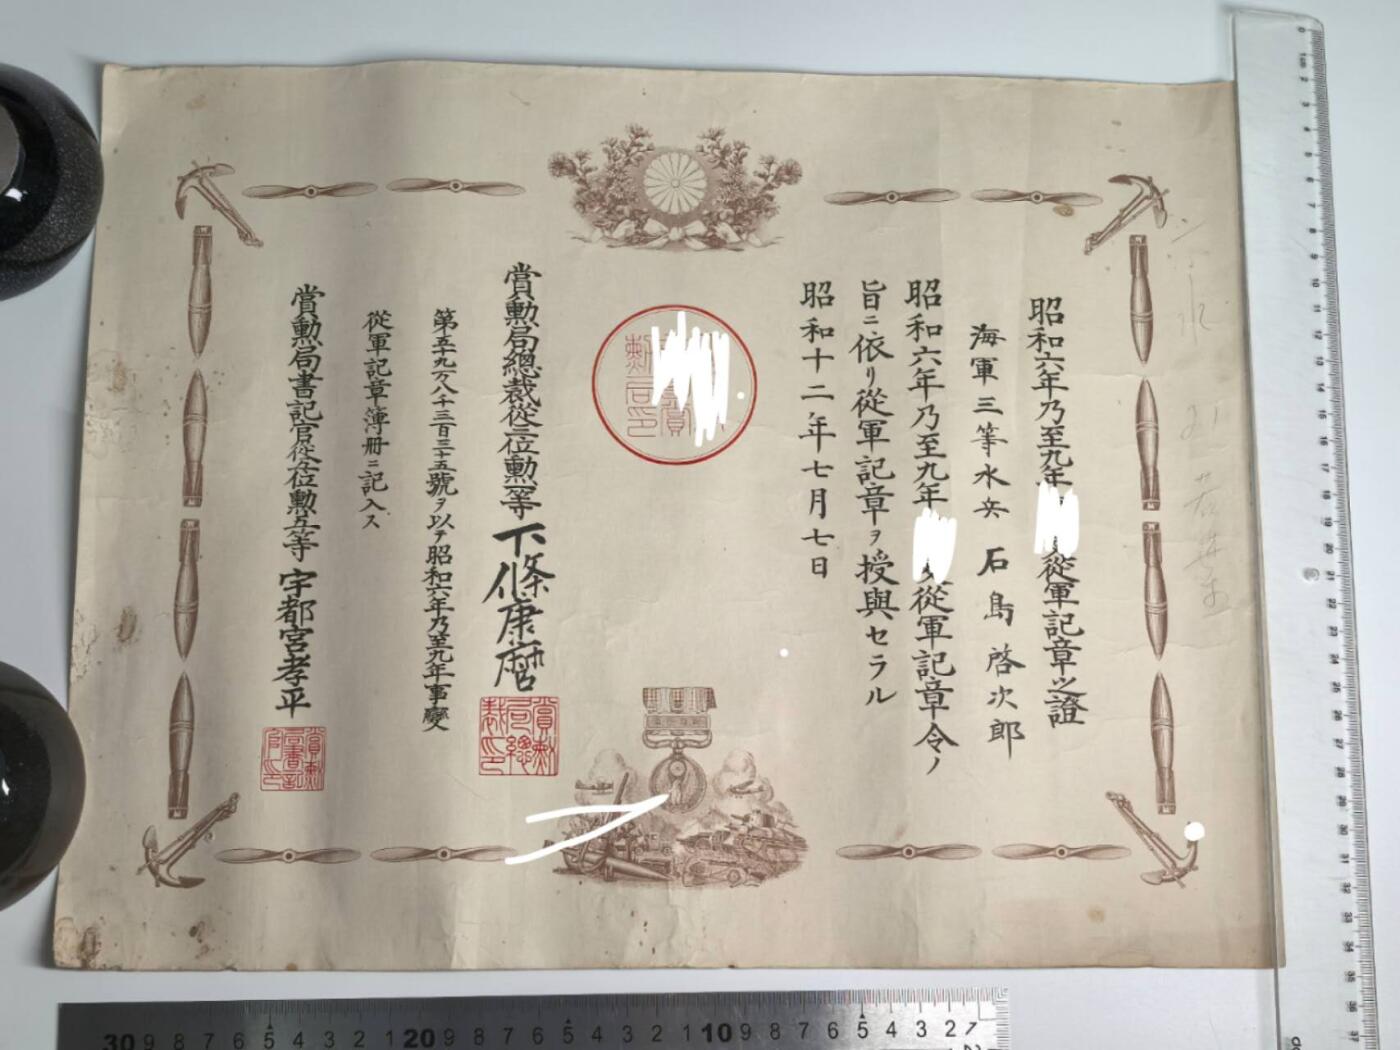 昭和六年乃至九年
從軍記章之證
海軍三等水兵 石島啓次郎
昭和六年乃至九年
從軍記章令ノ
旨ニ依リ從軍記章ヲ授與セラル
昭和十二年七月七日
賞勲局總裁從三位勲一等下條康麿
賞勲局總裁印
第五十九万八千三百三十五號ヲ以テ昭和六年乃至九年事變
從軍記章簿册ニ記入ス
賞勲局書記官從五位勲五等宇都宮孝平
賞勲局書記官印
30 9 8 7 6 5 4 3 2 1 20 9 8 7 6 5 4 3 2 1 10 9 8 7 6 5 4 3 2 1